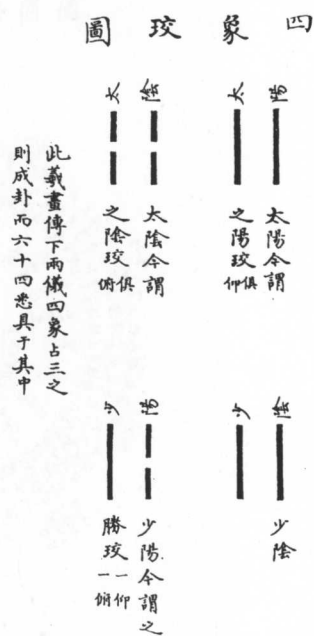 四象珓圖
太陽
太陽今謂
之陽珓俱仰
少陰
少陰
太陰
太陰今謂
之陰珓俱俯
少陽
少陽今謂之
勝珓一仰一俯
此羲畫傳下兩儀四象占三之
則成卦而六十四悉具于其中